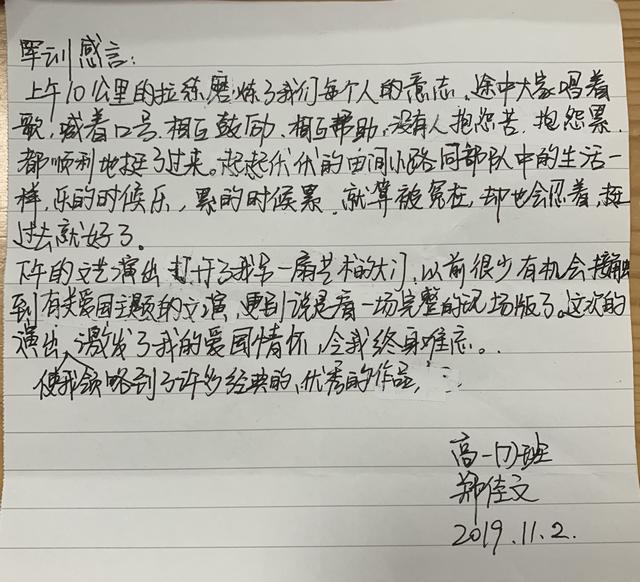 军训感言:
上午10公里的拉练磨炼了我们每个人的意志,途中大家唱着
歌,喊着口号,相互鼓励,相互帮助,没有人抱怨苦,抱怨累,
都顺利地挺了过来。起起伏伏的田间小路同部队中的生活一
样,乐的时候乐,累的时候累,就算被冤枉,却也会忍着,挺
过去就好了。
下午的文艺演出打开了我另一扇艺术的大门,以前很少有机会接触
到有关爱国主题的文演,更别说是看一场完整的现场版了。这次的
演出,激发了我的爱国情怀,令我终身难忘。
使我领略到了许多经典的、优秀的作品,
高一(7)班
郑佳文
2019.11.2.